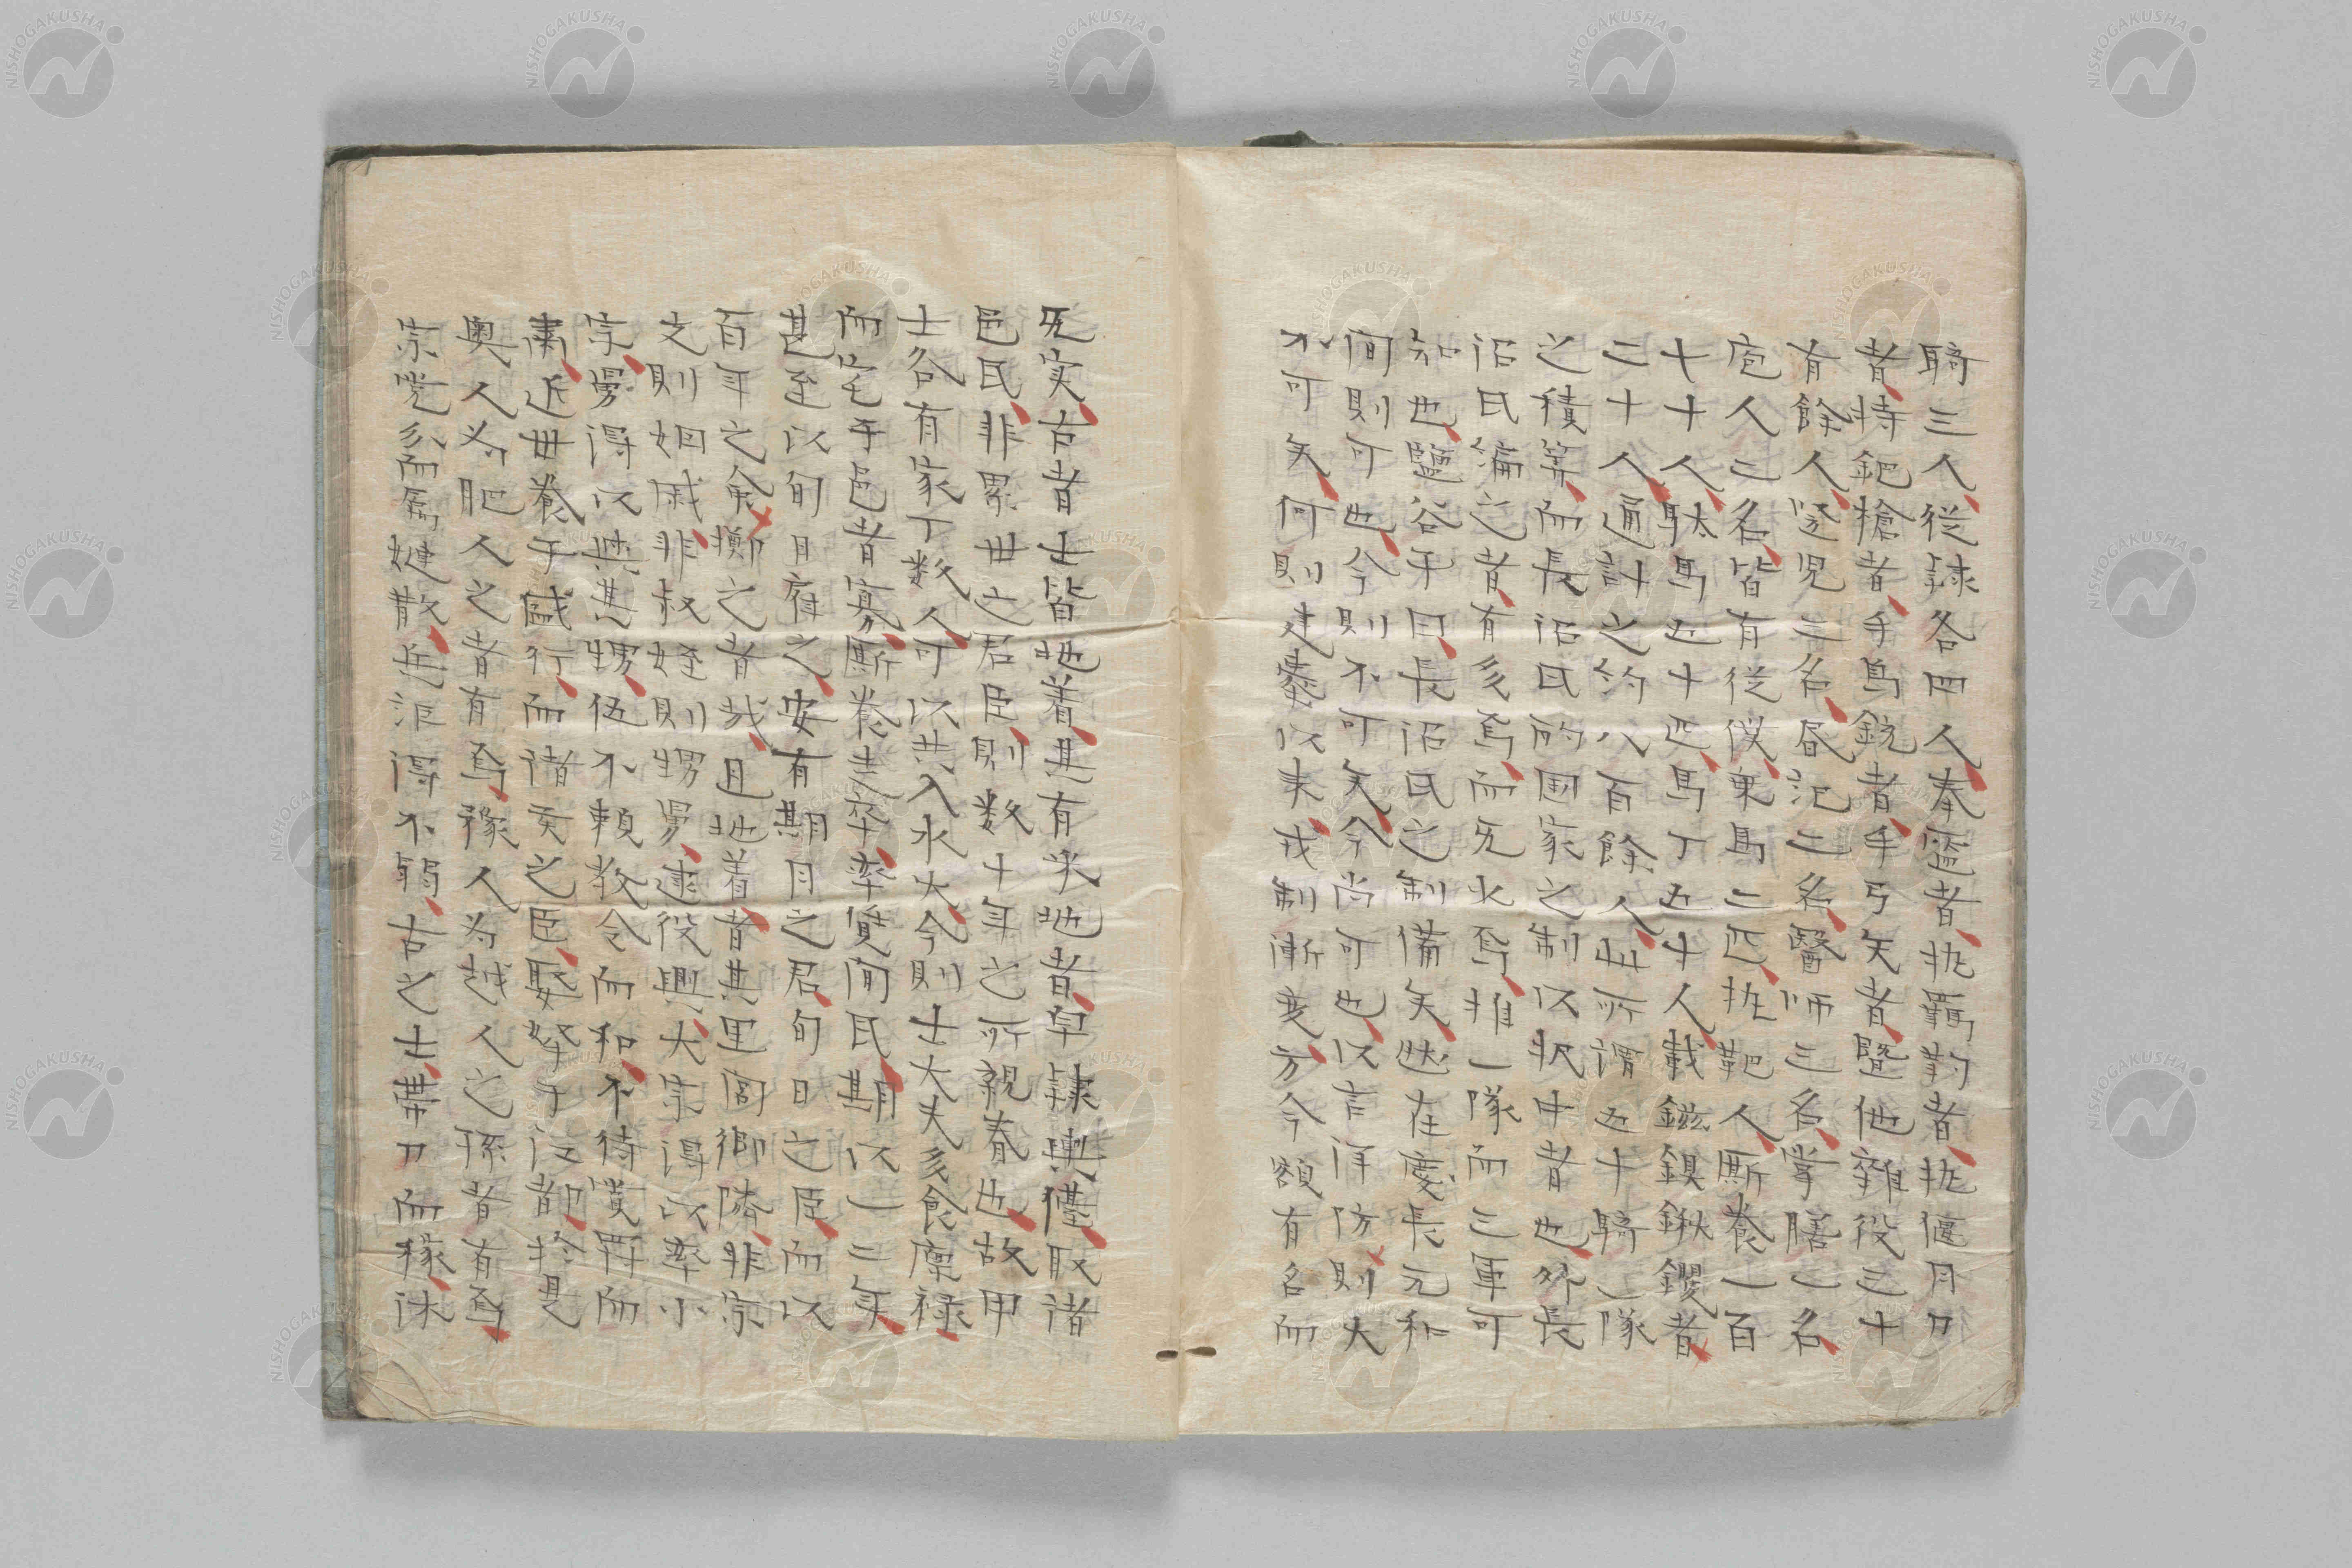 騎三人従隷各四人奉盔者执羁靮者执偃月刀
者持鈀槍者手鳥銃者手弓矢者暨他雜役三十
有餘人竪児二名昏汜二名醫师三名掌膳一名
庖人二名皆有従僕乗馬二匹执靶人厮養一百
七十人駄馬五十匹馬丁五十人載鎡鎭鍬钁者
二十人通計之約八百餘人此所謂五十騎一隊
之積筭而長沼氏的国家之制以折中者也外長
沼氏論之者有多焉而旡火焉推一隊而三軍可
知也鹽谷子曰長沼氏之制備矣然在慶長元和
间則可也今則不可矣今尚可也以言洋防則大
不可矣何則建櫜以来戎制漸変方今額有名而
旡实古者士皆地着其有采地者皁隷輿儓取諸
邑民非累世之君臣則数十年之所親眷也故甲
士各有家丁数人可以共入水火今則士大夫多食廩禄
而宅于邑者寡厮養走卒率賃间民期以一二年
甚至以旬月雇之安有期月之君旬日之臣而以
百年之命擲之者哉且地着者其里閭鄉隣非宗
支則姻戚非叔姪則甥舅逮役興大宗得以率小
宗舅得以與其甥伍不賴教令而和不待賞罸而
肅近世養子盛行而諸矦之臣娶孥于江都於是
奥人为肥人之者有焉豫人为越人之孫者有焉
宗党分而属婕散兵沮得不弱古之士帶刀而稼沐